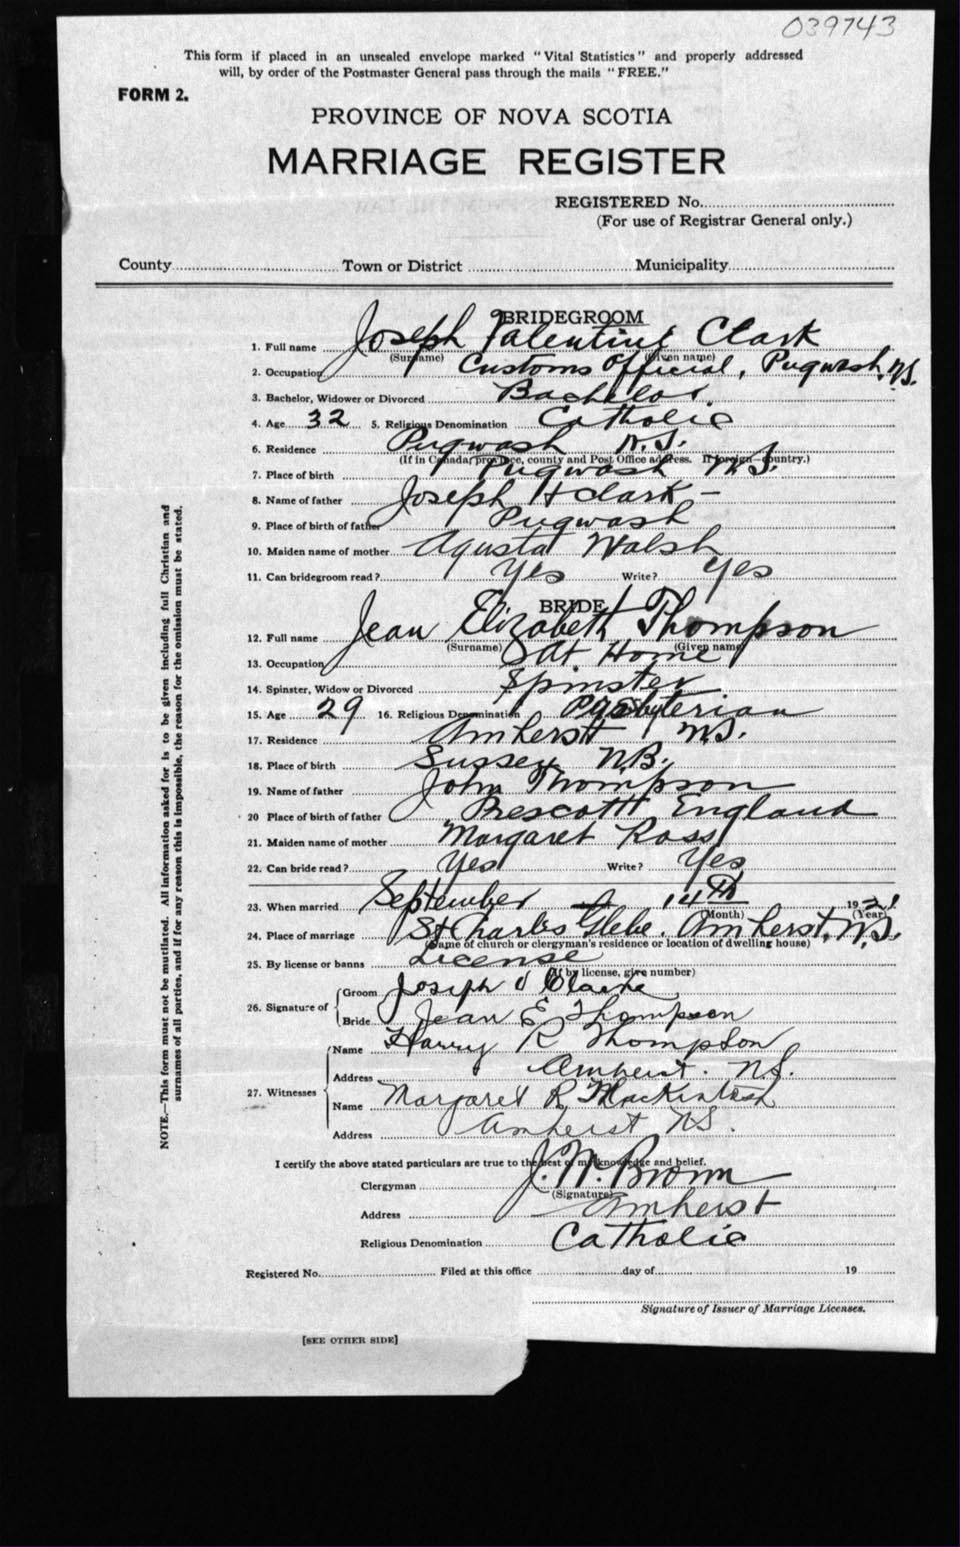 039743
This form if placed in an unsealed envelope marked "Vital Statistics" and properly addressed
will, by order of the Postmaster General pass through the mails "FREE."
FORM 2.
PROVINCE OF NOVA SCOTIA
MARRIAGE REGISTER
REGISTERED No.
(For use of Registrar General only.)
County Town or District Municipality
BRIDEGROOM
1. Full name Joseph Valentine Clark
(Surname) (Given name)
2. Occupation Customs Official, Pugwash, N.S.
3. Bachelor, Widower or Divorced Bachelor.
4. Age 32 5. Religious Denomination Catholic
6. Residence Pugwash N.S.
(If in Canada, province, county and Post Office address. If foreign—country.)
7. Place of birth Pugwash N.S.
8. Name of father Joseph H Clark –
9. Place of birth of father Pugwash
10. Maiden name of mother Agusta Walsh
11. Can bridegroom read? Yes Write? Yes
BRIDE
12. Full name Jean Elizabeth Thompson
(Surname) (Given name)
13. Occupation At Home
14. Spinster, Widow or Divorced Spinster
15. Age 29 16. Religious Denomination Presbyterian
17. Residence Amherst N.S.
18. Place of birth Sussex N.B.
19. Name of father John Thompson
20 Place of birth of father Prescott England
21. Maiden name of mother Margaret Ross
22. Can bride read? Yes Write? Yes
23. When married September 14th 1921
(Month) (Year)
24. Place of marriage St Charles Glebe. Amherst, N.S.
(Name of church or clergyman's residence or location of dwelling house)
25. By license or banns License
(If by license, give number)
26. Signature of
Groom Joseph V Clarke
Bride Jean E Thompson
27. Witnesses
Name Harry R Thompson
Address Amherst. N.S.
Name Margaret R Mackintosh
Address Amherst N.S.
I certify the above stated particulars are true to the best of my knowledge and belief.
Clergyman J. W. Brown
(Signature)
Address Amherst
Religious Denomination Catholic
Registered No. Filed at this office day of 19
Signature of Issuer of Marriage Licenses.
[SEE OTHER SIDE]
NOTE.—This form must not be mutilated. All information asked for is to be given including full Christian and
surnames of all parties, and if for any reason this is impossible, the reason for the omission must be stated.